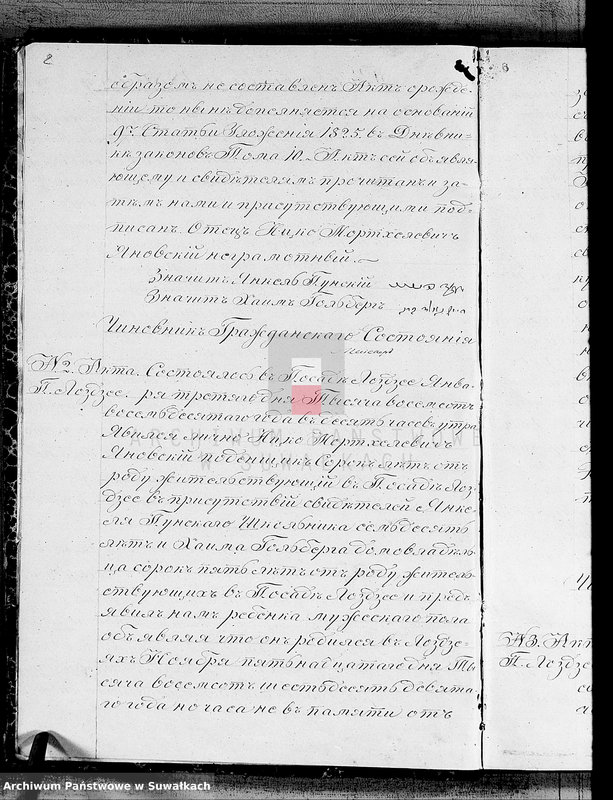 2
образомъ не составленъ Актъ о рожде-
нiи то нынѣ дополняется на основанiи
94. Статьи Уложенiя 1825. въ Дневни-
кѣ законовъ Тома 10. Актъ сей объявля-
ющему и свидѣтелямъ прочитанъ и за-
тѣмъ нами и присутствующими под-
писан. Отецъ Ицко Мортхеловичъ
Яновскiй неграмотный.
Значитъ Янкель Пунскiй
Значитъ Хаимъ Гольбергъ
Чиновникъ Гражданскаго Состоянiя
№2. Акта. Состоялось въ Посадѣ Лоздзее Янва-
П. Лоздзее. ря третяго дня Тысяча восемсотъ
восемьдесятаго года въ десять часовъ утра
Явился лично Ицко Мортхеловичъ
Яновскiй поденщикъ Сорокъ лѣтъ отъ
роду жительствующiй въ Посадѣ Лоз-
дзее въ присутствiй свидѣтелей Янке-
ля Пунскаго Школьника семьдесятъ
лѣтъ и Хаима Гольберга домовладѣль-
ца сорокъ пять лѣтъ отъ роду житель-
ствующихъ въ Посадѣ Лоздзее и предъ-
явилъ намъ ребенка мужескаго пола
объявляя что онъ родился въ Лоздзе-
яхъ Ноября пятьнадцатаго дня Ты-
сяча восемсотъ шестьдесятъ девята-
го года но часа не въ памяти отъ
№3. Акт
П. Лоздзе
ARCHIWUM PAŃSTWOWE
W SUWAŁKACH
Archiwum Państwowe w Suwałkach